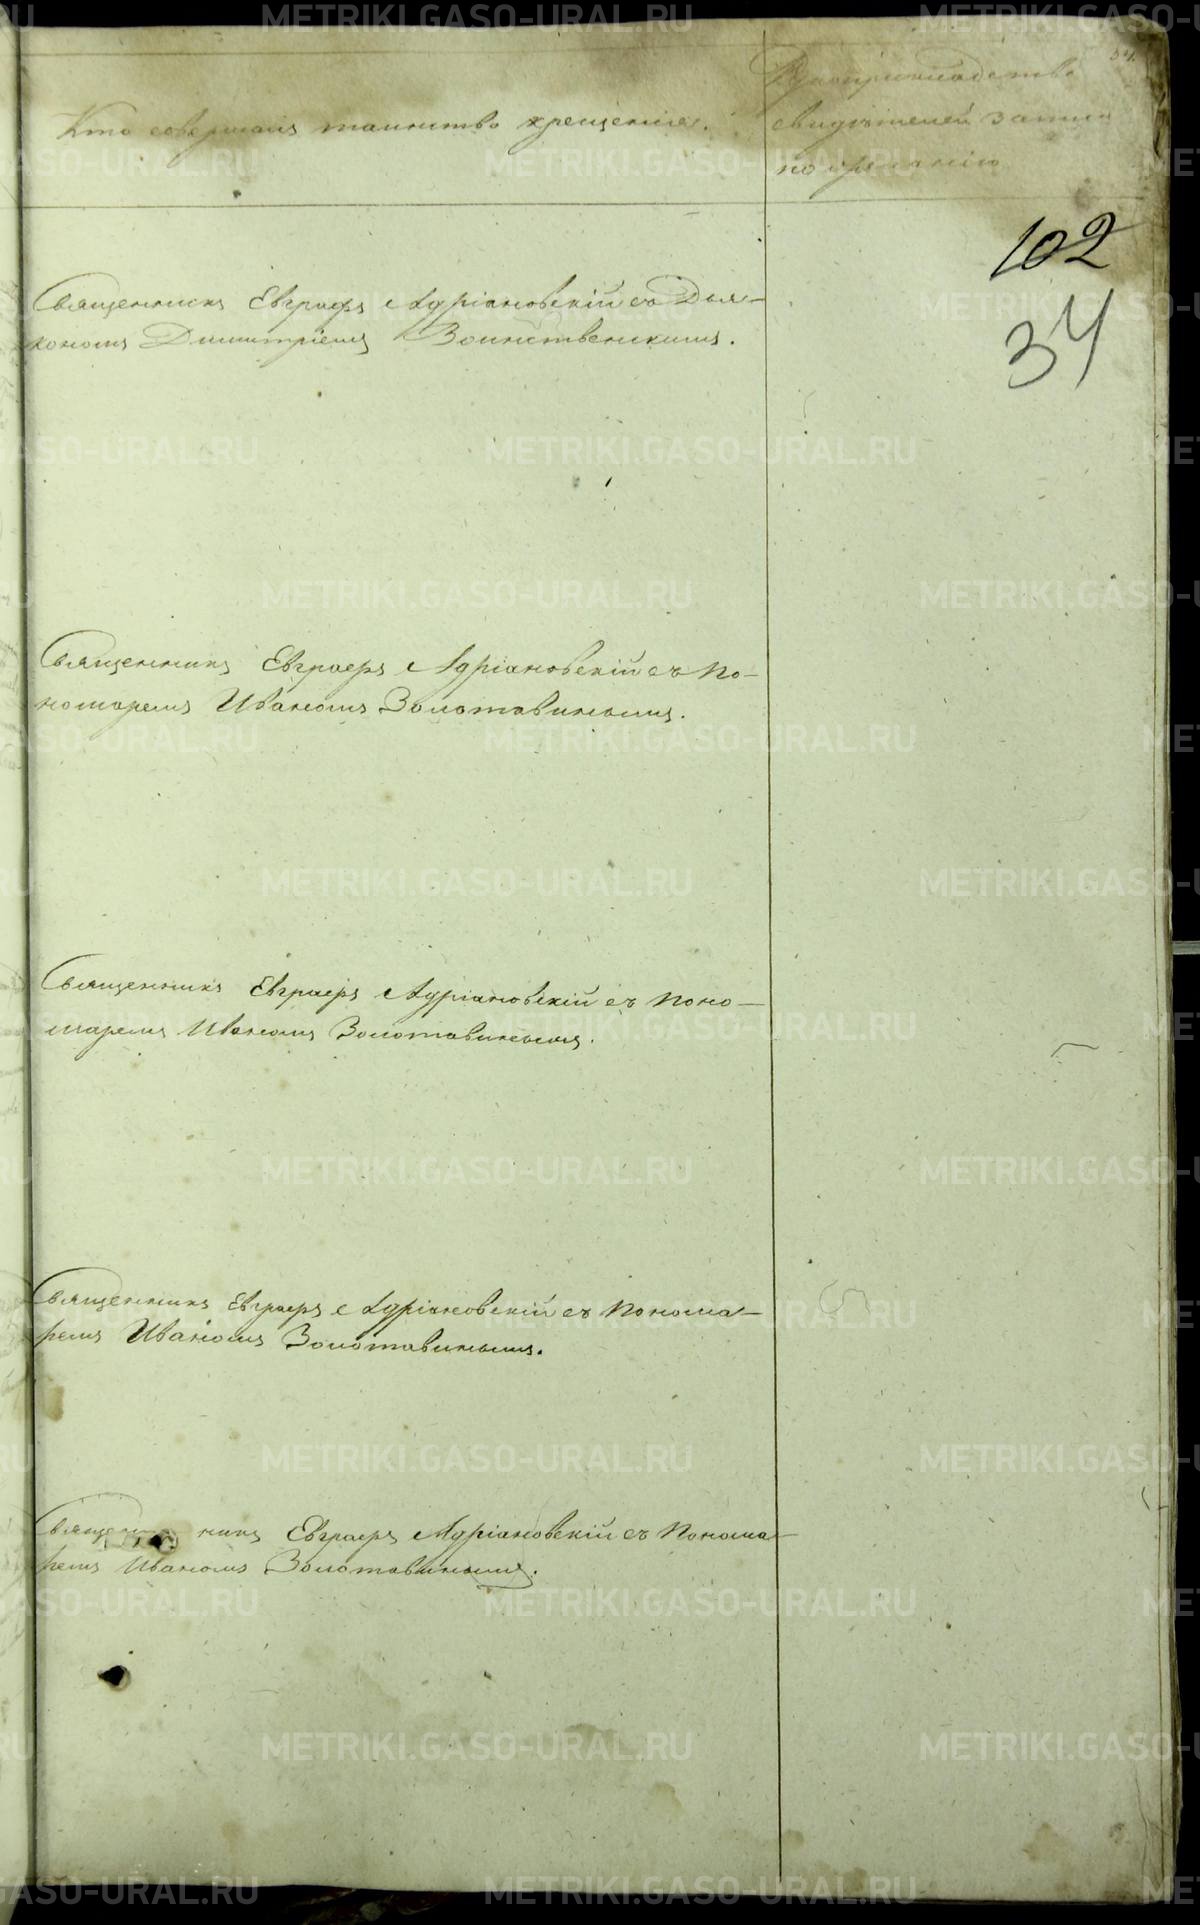 34.
Кто совершалъ таинство крещенія.
Рукоприкладство
свидѣтелей записи
по желанію
102
34
Священникъ Евграфъ Адріановскій съ Діа-
кономъ Димитріемъ Воинственскимъ.
Священникъ Евграфъ Адріановскій съ По-
номаремъ Иваномъ Золотавинымъ.
Священникъ Евграфъ Адріановскій съ Поно-
маремъ Иваномъ Золотавинымъ.
Священникъ Евграфъ Адріановскій съ Понома-
ремъ Иваномъ Золотавинымъ.
Священникъ Евграфъ Адріановскій съ Понома-
ремъ Иваномъ Золотавинымъ.
METRIKI.GASO-URAL.RU